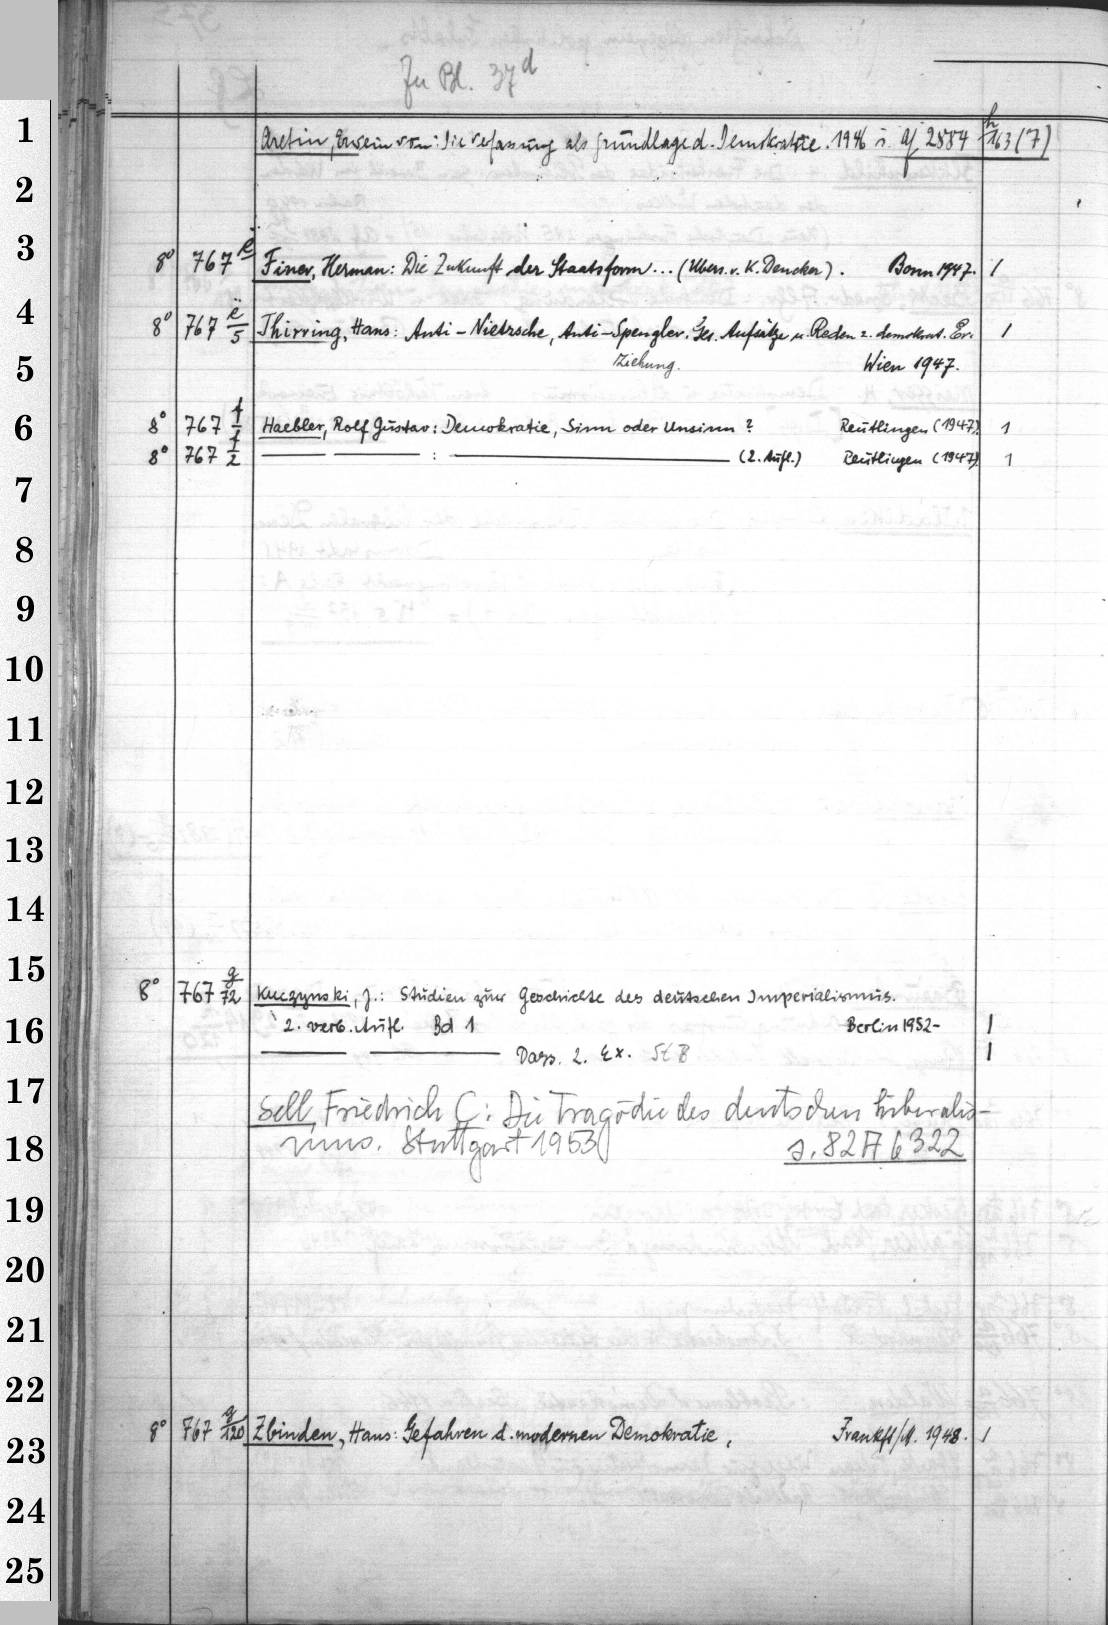 Zu Bl. 37d
1 Aretin, Erwein von: Die Verfassung als Grundlage d. Demokratie. 1946 s. Af 2884 h/163 (7)
2
3 8° 767 e Finer, Herman: Die Zukunft der Staatsform... (Übers. v. K. Dencker). Bonn 1947. 1
4 8° 767 e/5 Thirring, Hans: Anti-Nietzsche, Anti-Spengler. Ges. Aufsätze u. Reden z. demokrat. Er- 1
5 ziehung. Wien 1947.
6 8° 767 f/1 Haebler, Rolf Gustav: Demokratie, Sinn oder Unsinn? Reutlingen (1947) 1
8° 767 f/2 — — : — (2. Aufl.) Reutlingen (1947) 1
7
8
9
10
11
12
13
14
15 8° 767 g/72 Kuczynski, J.: Studien zur Geschichte des deutschen Imperialismus.
16 2. verb. Aufl. Bd 1 Berlin 1952- 1
— — Dass. 2. Ex. St B 1
17 Sell, Friedrich C.: Die Tragödie des deutschen Liberalis-
18 mus. Stuttgart 1953 s. 82 A 6322
19
20
21
22
23 8° 767 g/120 Zbinden, Hans: Gefahren d. modernen Demokratie, Frankft/M. 1948. 1
24
25